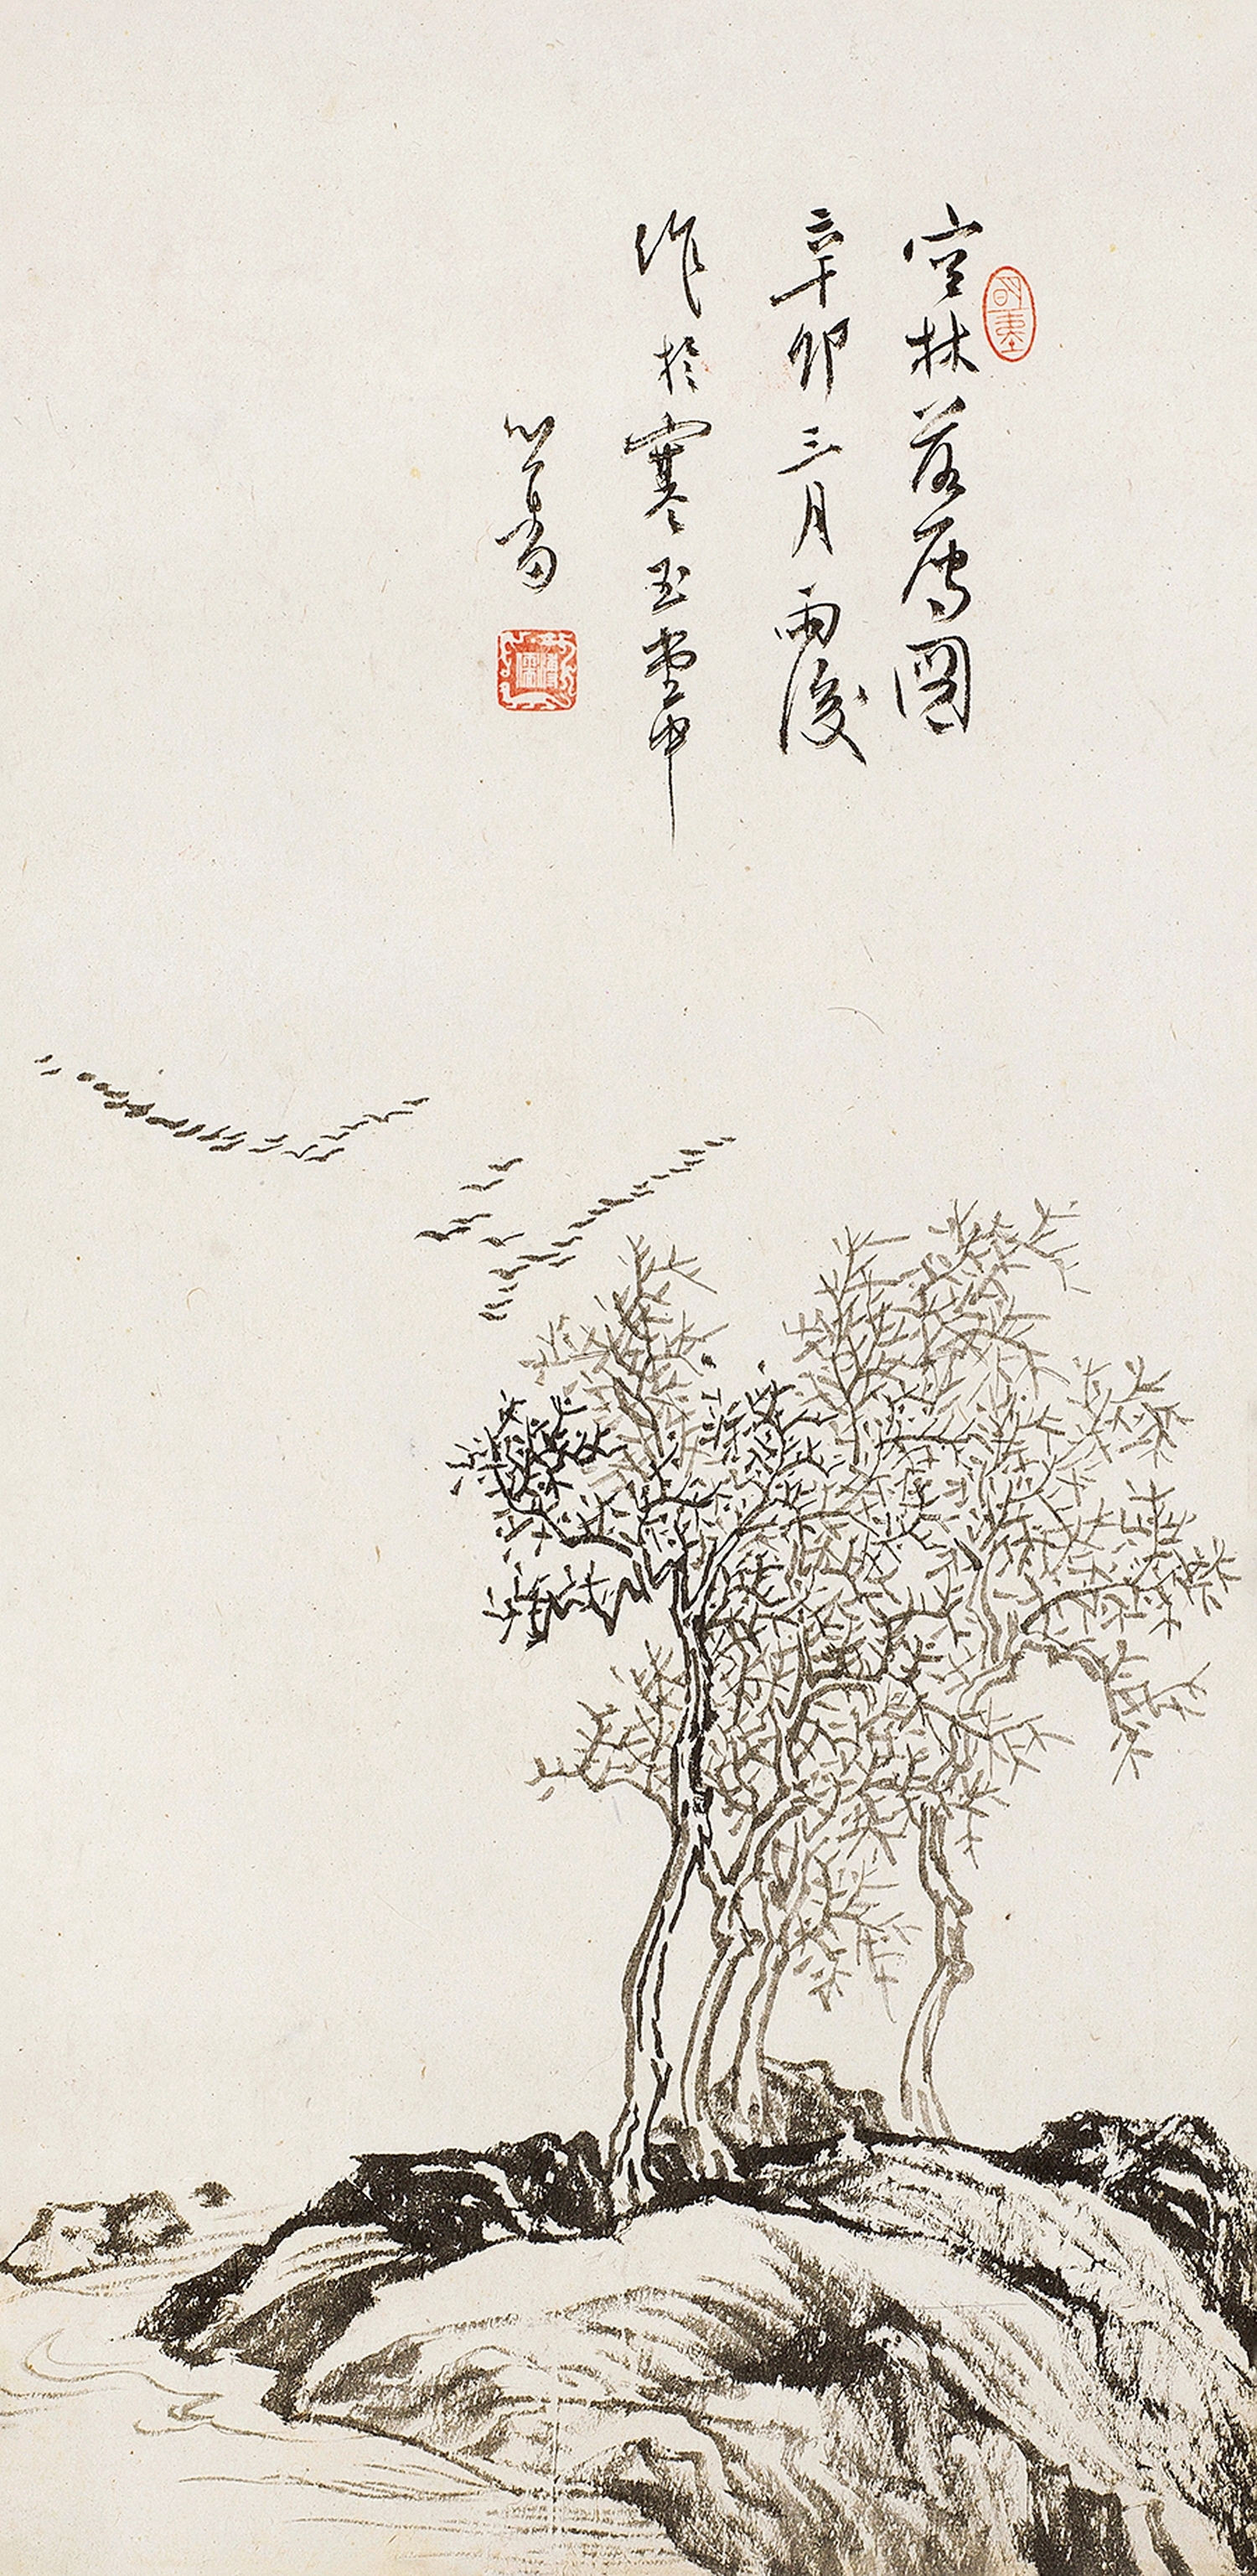 空林落雁圖
辛卯三月雨後
作於寒玉堂中
心畬
明夷
溥儒